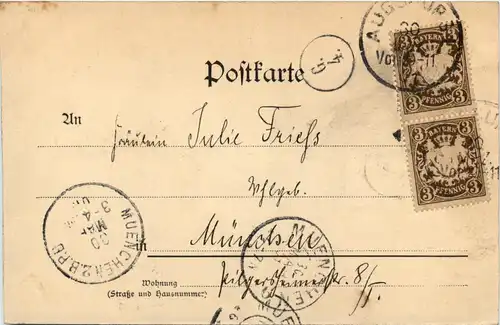 AUGSBURG
Vor. 9-11
BAYERN
3 3
PFENNIG
BAYERN
3 3
PFENNIG
Postkarte
An
Fräulein Julie Friess
Whlgeb.
MUENCHEN 2 B.P.
3-4
MAR
00
in München
Wohnung
(Straße und Hausnummer)
Pilgersheimerstr. 8/I.